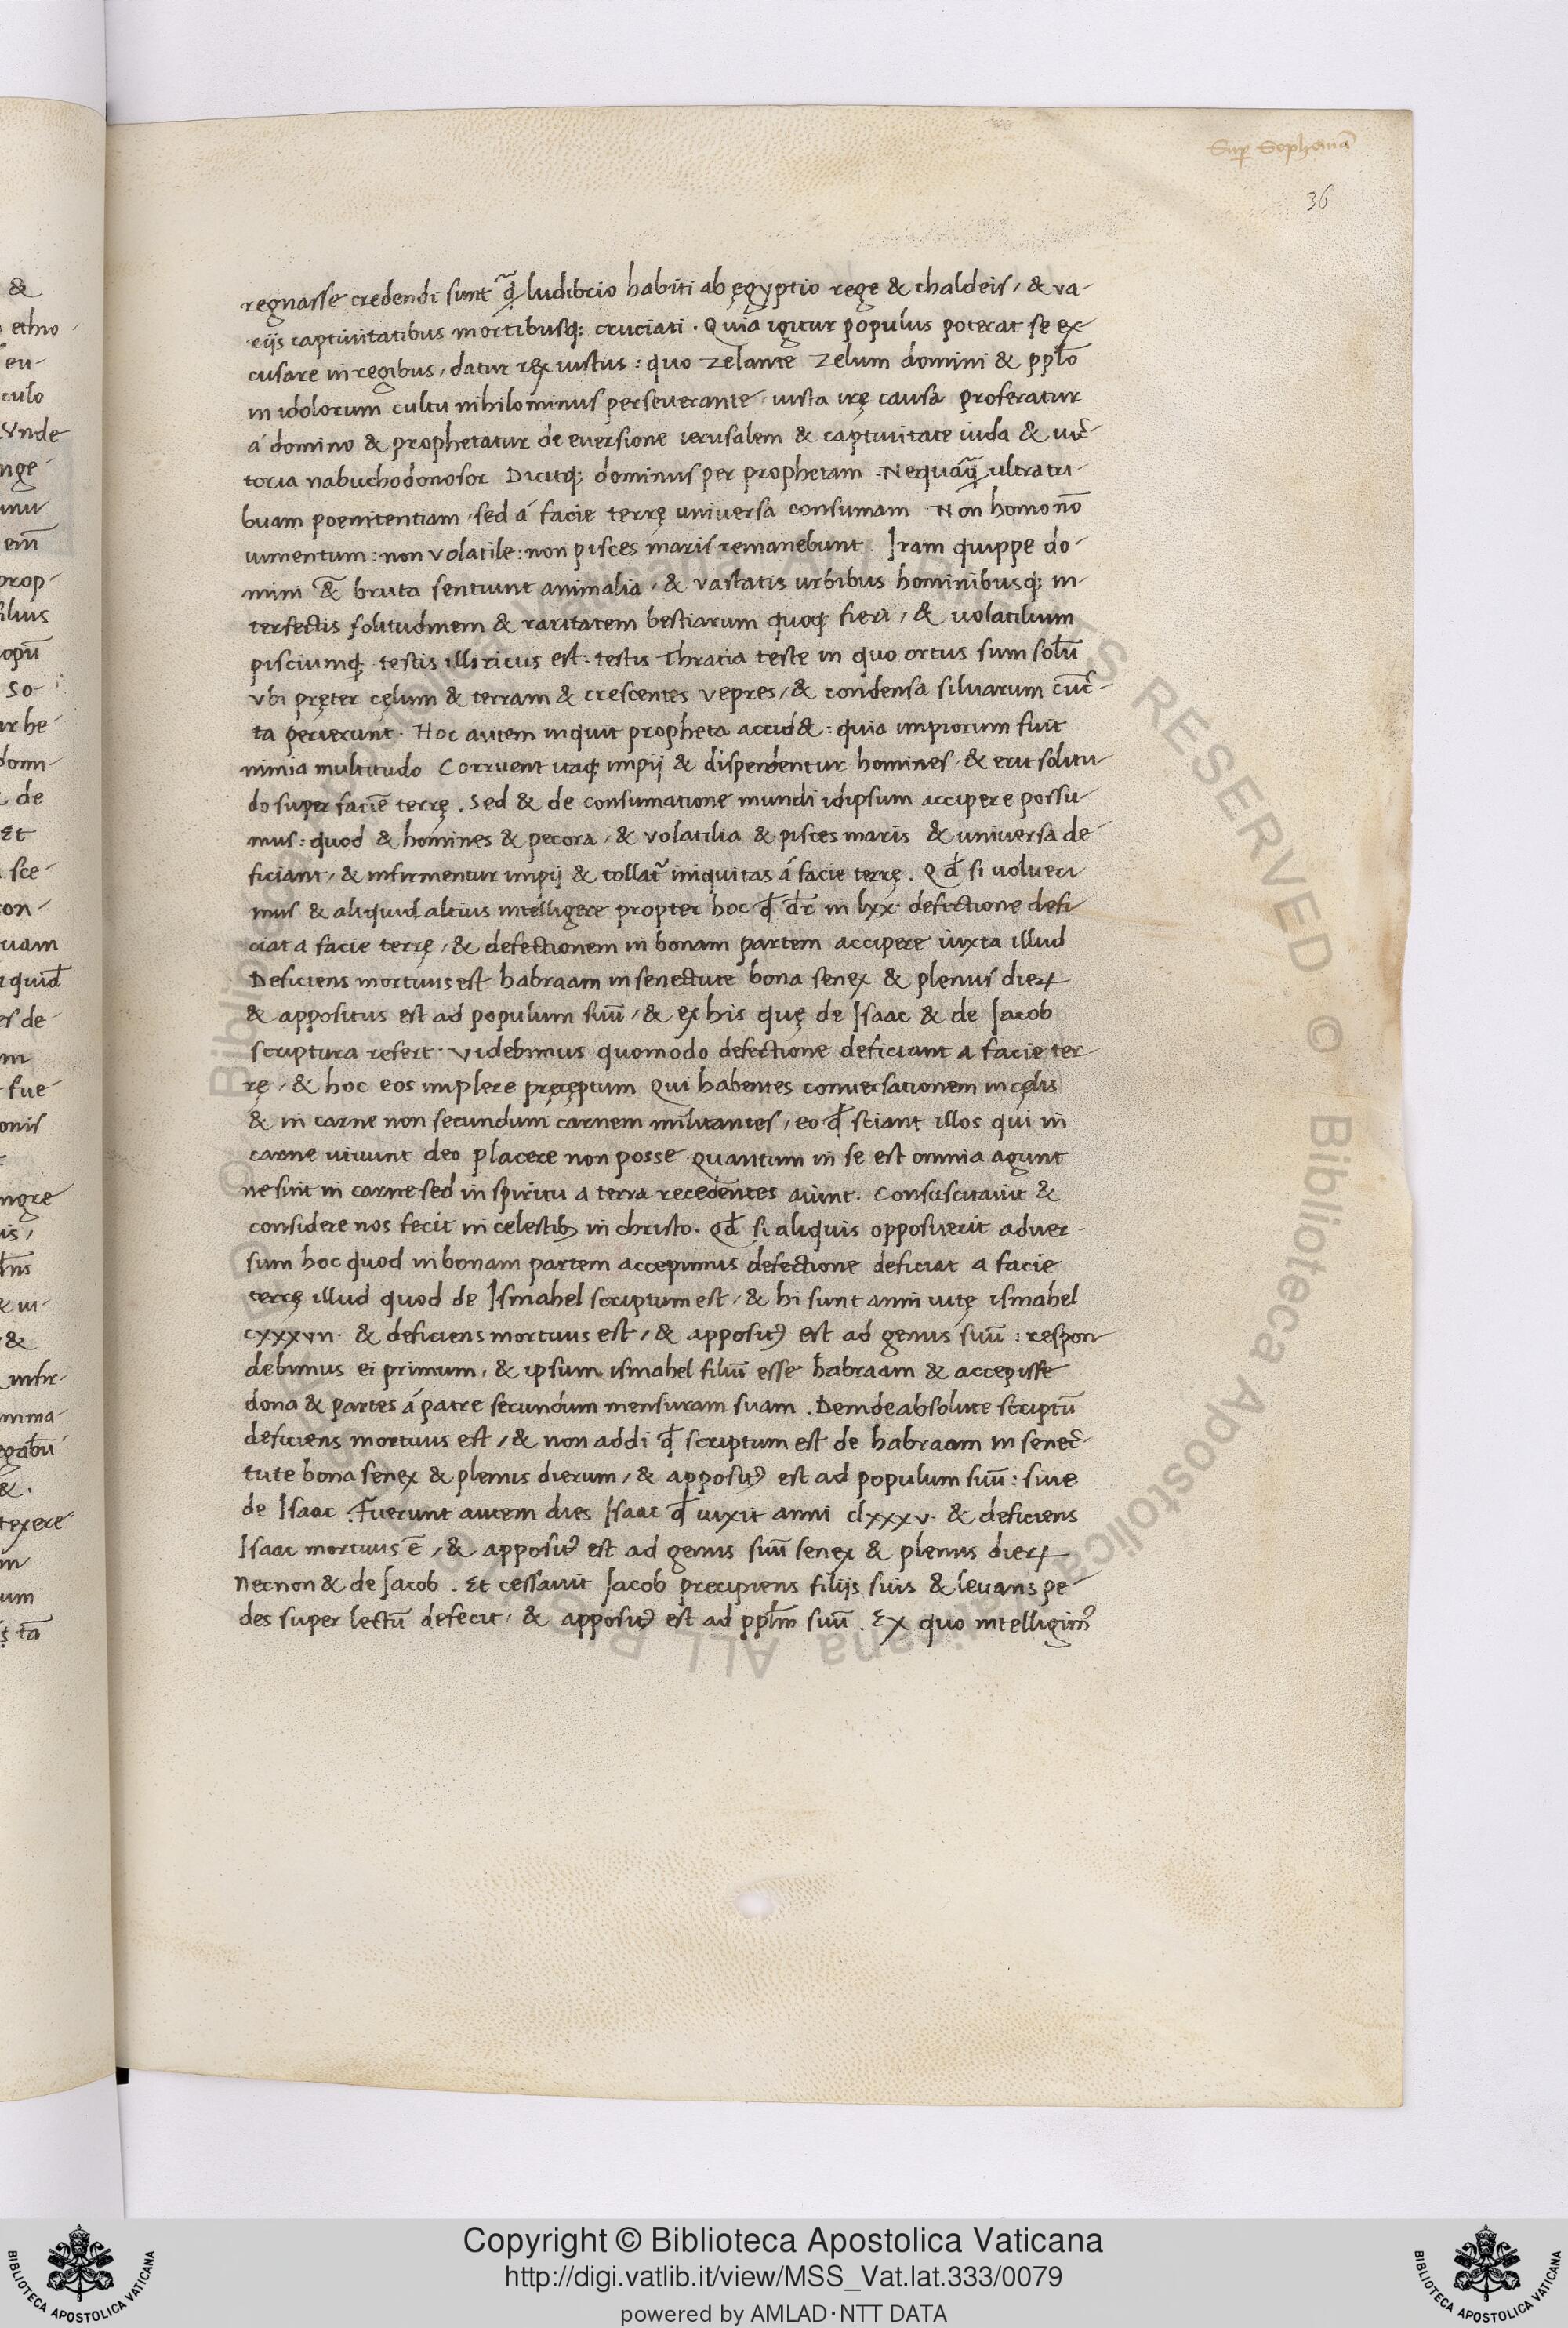 Sup Sophoniā
36
regnasse credendi sunt q̃ ludibrio habiti ab ęgyptio rege & chaldeis, & va-
rijs captivitatibus mortibusq; cruciati. Quia igitur populus poterat se ex-
cusare in regibus, datur rex iustus: quo zelante zelum domini & pplo
in idolorum cultu nihilominus perseverante, iusta irę causa proferatur
á domino & prophetatur de eversione ierusalem & captivitate iuda & vic-
toria nabuchodonosor Dicitq; dominus per prophetam. Nequaq̃ ultra tri-
buam poenitentiam, sed á facie terrę universa consumam Non homo nō
iumentum: non volatile: non pisces maris remanebunt. Iram quippe do-
mini &̄ bruta sentiunt animalia, & vastatis urbibus hominibusq; in-
terfectis solitudinem & raritatem bestiarum quoq; fieri, & volatilium
pisciumq; testis illiricus est: testis Thracia teste in quo ortus sum solū
Vbi pręter cęlum & terram & crescentes vepres, & condensa silvarum cunc-
ta perierunt. Hoc autem inquit propheta accid&: quia impiorum fuit
nimia multitudo Corruent itaq; impij & disperdentur homines, & erit solitu
do super faciē terrę. Sed & de consumatione mundi idipsum accipere possu-
mus: quod & homines & pecora, & volatilia & pisces maris & universa de-
ficiant, & infirmentur impij & tollat᷑ iniquitas á facie terrę. Qđ si volueri
mus & aliquid altius intelligere propter hoc qđ dr̄ in lxx. defectione defi
ciat a facie terrę, & defectionem in bonam partem accipere iuxta illud
Deficiens mortuus est habraam in senectute bona senex & plenus dieꝝ
& appositus est ad populum suū, & ex his quę de Isaac & de Jacob
scriptura refert. Videbimus quomodo defectione deficiant a facie ter
rę, & hoc eos implere pręcęptum Qui habentes conversationem in cęlis
& in carne non secundum carnem militantes, eo qđ sciant illos qui in
carne vivunt deo placere non posse Quantum in se est omnia agunt
ne sint in carne sed in spiritu a terra recedentes aiunt. Consuscitavit &
considere nos fecit in celestibꝫ in christo. Qđ si aliquis opposuerit adver-
sum hoc quod in bonam partem accepimus defectione deficiat a facie
terrę illud quod de Ismahel scriptum est, & hi sunt anni vitę ismahel
cxxxvii. & deficiens mortuus est, & apposit᷒ est ad genus suū: respon
debimus ei primum, & ipsum ismahel filiū esse habraam & accepisse
dona & partes á patre secundum mensuram suam. Deinde absolute scriptū
deficiens mortuus est, & non addi qđ scriptum est de habraam in senec-
tute bona senex & plenus dierum, & apposit᷒ est ad populum suū: sive
de Isaac. Fuerunt autem dies Isaac qđ vixit anni clxxxv. & deficiens
Isaac mortuus ē, & apposit᷒ est ad genus suū senex & plenus dieꝝ
Necnon & de Jacob. Et cessavit Jacob precipiens filijs suis & levans pe-
des super lectū defecit, & apposit᷒ est ad pplm suū. Ex quo intelligim᷒
Copyright © Biblioteca Apostolica Vaticana
http://digi.vatlib.it/view/MSS_Vat.lat.333/0079
powered by AMLAD·NTT DATA